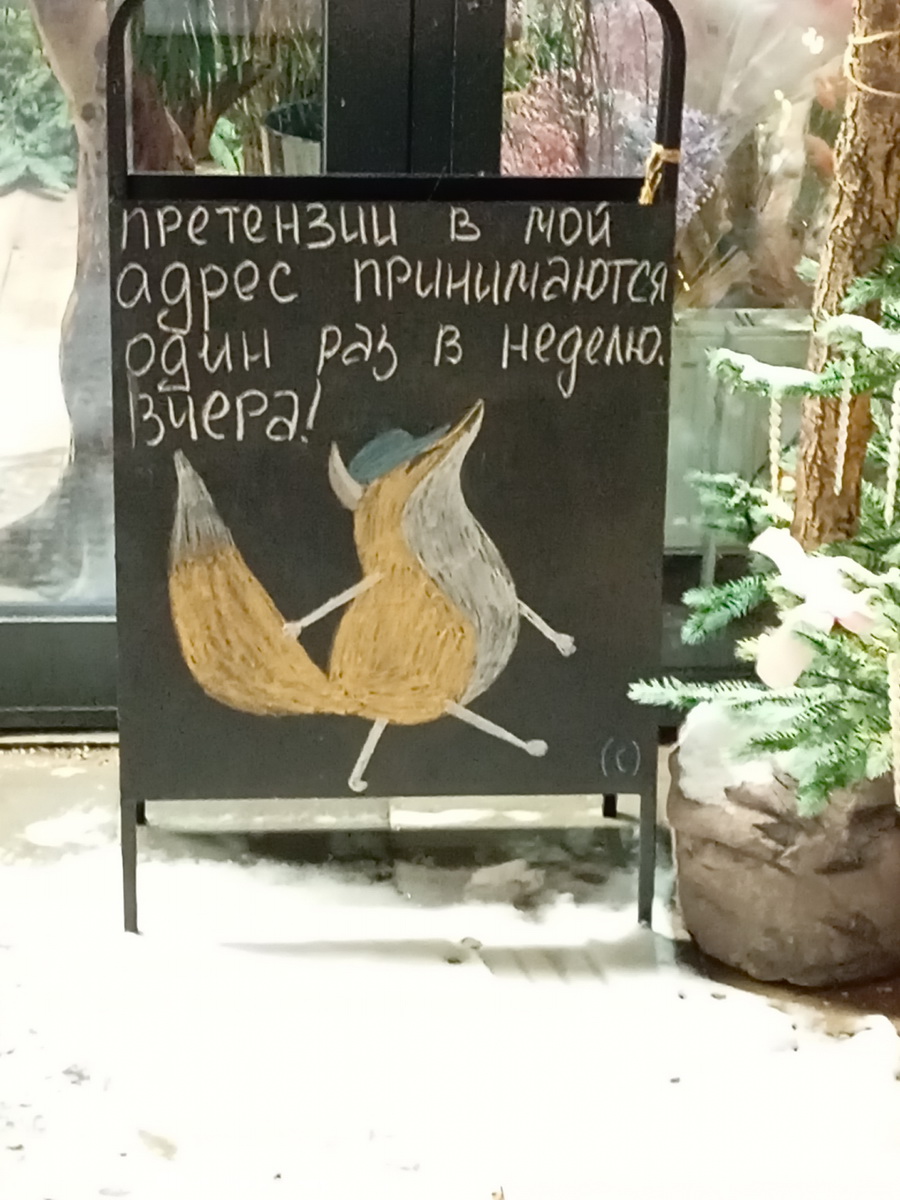 претензии в мой
адрес принимаются
один раз в неделю.
Вчера!
(с)